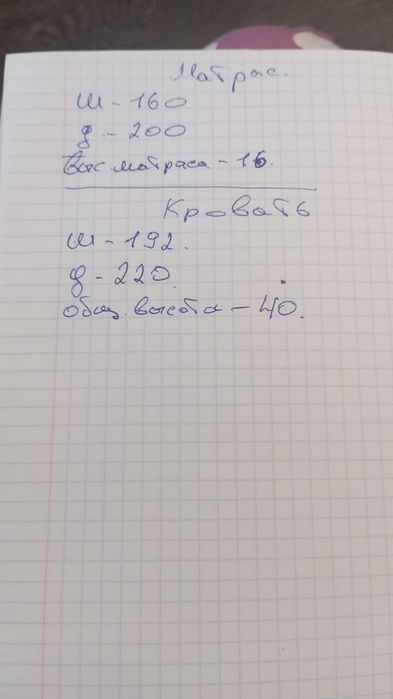 Матрас.
Ш - 160
д. - 200
Выс. матраса - 16.
Кровать
Ш - 192.
д - 220.
общ. высота - 40.